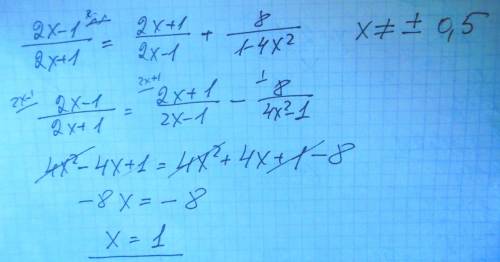 (2x-1)/(2x+1) = (2x+1)/(2x-1) + 8/(1-4x²) x ≠ ± 0,5
2x-1 (2x-1)/(2x+1) = 2x+1 (2x+1)/(2x-1) - 1 8/(4x²-1)
4x²-4x+1 = 4x²+4x+1-8
-8x = -8
x = 1